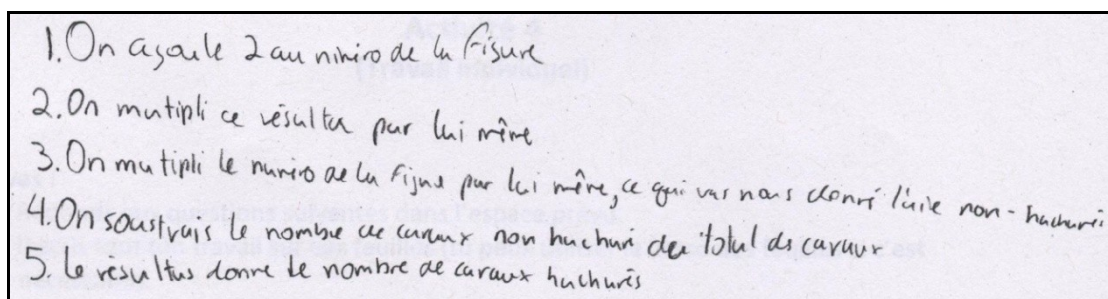 1. On agoule 2 au niméro de la figure
2. On mutipli ce résulta par lui même
3. On mutipli le numéro de la figure par lui même, ce qui vas nous donné l'aire non-hachuré
4. On soustrais le nombre de caraux non hachuré du total ds caraux
5. Le resultas donne le nombre de caraux hachurés